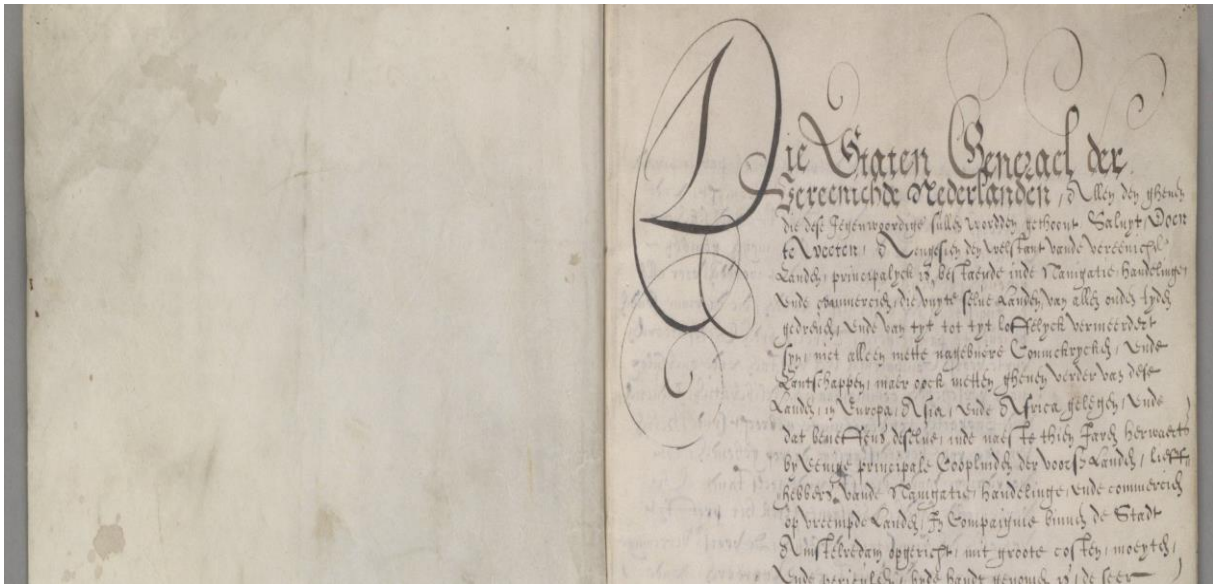 Die Staten Generael der
Vereenichde Nederlanden, Allen den ghenen
die dese Jegenwoordige sullen wordden gethoont Saluyt, Doen
te weeten, Alsoo den welstant vande vereenichde
Landen, principalyck is bestaende inde Navigatie, handelinge,
ende commercien, die vuyte selve Landen van allen ouden tyden
gedreven, ende van tyt tot tyt loffelyck vermeerdert
syn, niet alleen mette nagebuere Conincryken, ende
Lantschappen, maer oock metten ghenen verder van dese
Landen, in Europa, Asia, ende Africa gelegen, ende
dat beneffens deselve, inde naeste thien Jaren herwaerts
by eenige principale Coopluiden der voorsz Landen, lieff-
hebbers vande Navigatie, handelinge, ende commercien
op vreempde Landen, In Compaignie binnen de Stadt
Amstelredam opgericht, mit groote costen, moeyten,
ende periculen, byde handt genomen is, de seer